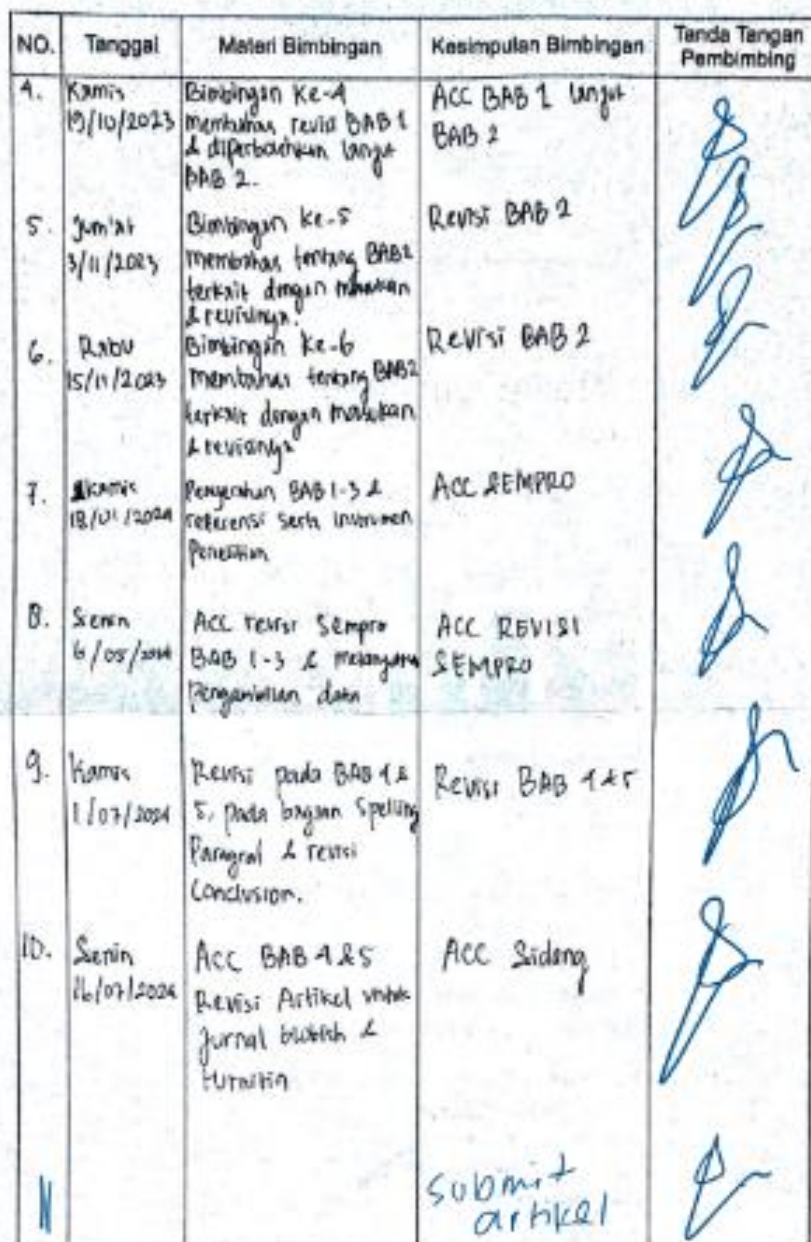 NO. Tanggal Materi Bimbingan Kesimpulan Bimbingan Tanda Tangan Pembimbing
4. Kamis 19/10/2023
Bimbingan Ke-4
membahas revisi BAB 1
& diperbolehkan lanjut
BAB 2.
ACC BAB 1 lanjut
BAB 2
5. Jum'at 3/11/2023
Bimbingan Ke-5
membahas tentang BAB2
terkait dengan masukan
& revisinya.
Revisi BAB 2
6. Rabu 15/11/2023
Bimbingan Ke-6
membahas tentang BAB2
terkait dengan masukan
& revisinya
Revisi BAB 2
7. Kamis 18/01/2024
Penyerahan BAB 1-3 &
referensi serta instrumen
Penelitian
ACC SEMPRO
8. Senin 6/05/2024
ACC revisi Sempro
BAB 1-3 &
pengambilan data
ACC REVISI
SEMPRO
9. Kamis 1/07/2024
Revisi pada BAB 4 &
5, pada bagian Spelling
Paragraf & revisi
Conclusion.
Revisi BAB 4 & 5
10. Senin 16/07/2024
ACC BAB 4 & 5
Revisi Artikel untuk
Jurnal &
turnitin
ACC Sidang
11
submit
artikel